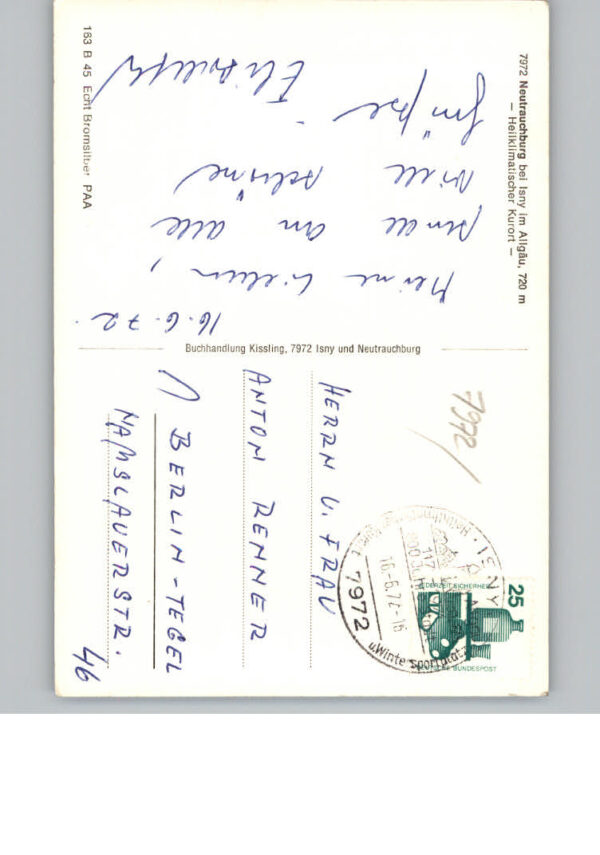 7972 Neutrauchburg bei Isny im Allgäu, 720 m
– Heilklimatischer Kurort –
16.6.72.
Meine Lieben,
sende an alle
viele schöne
Grüße
Elisabeth
163 B 45 Echt Bromsilber PAA
Buchhandlung Kissling, 7972 Isny und Neutrauchburg
7972/
ISNY
16.-6.72-16
7972
u. Wintersportplatz
25
JEDERZEIT SICHERHEIT
DEUTSCHE BUNDESPOST
HERRN U. FRAU
ANTON RENNER
1 BERLIN-TEGEL
NAMSLAUERSTR. 46